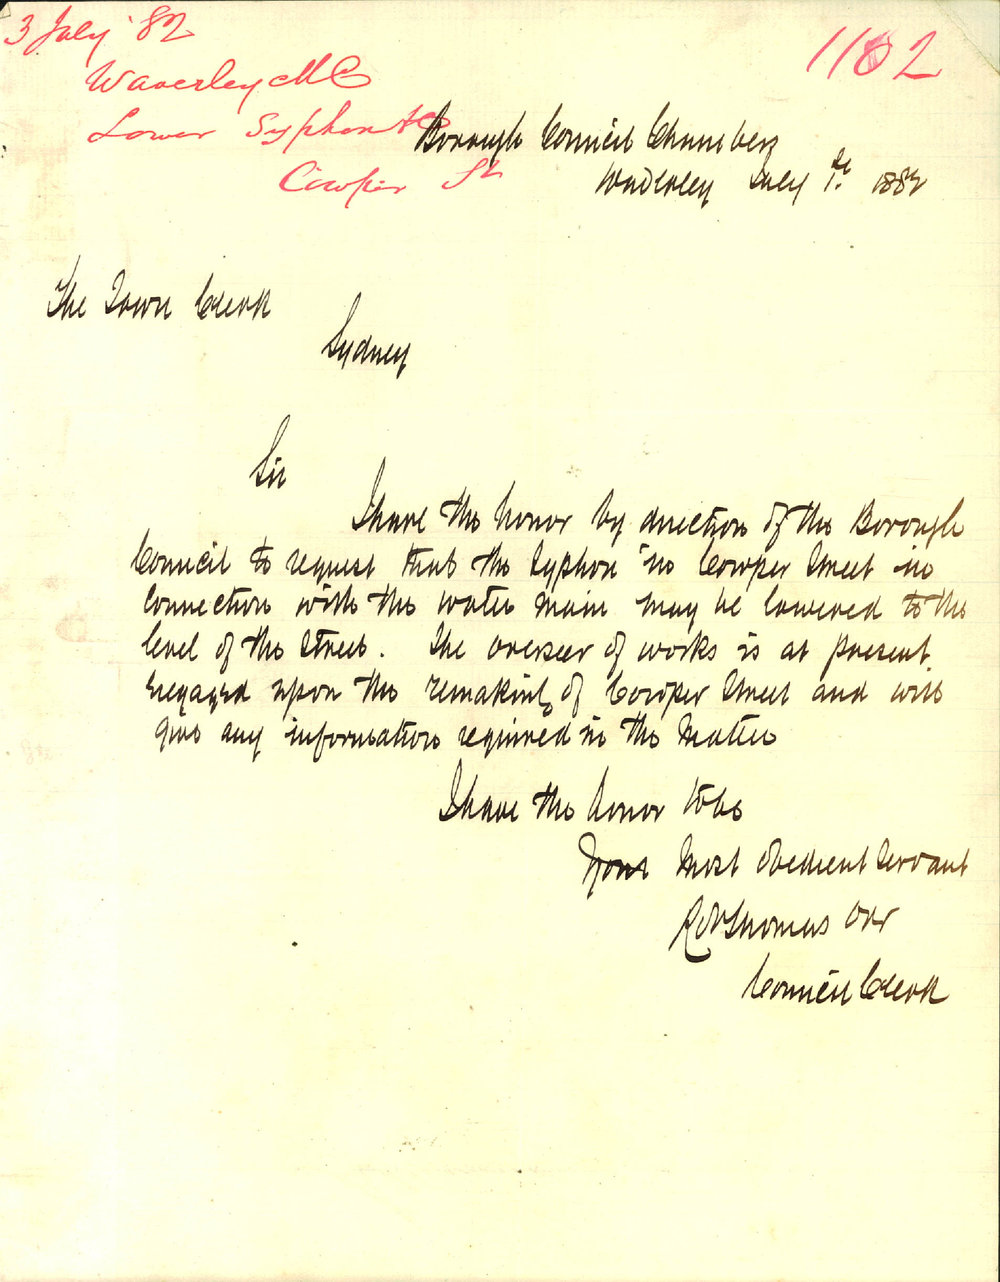 3 July '82
1182
Waverley M C
Lower Syphon &c
Cowper St
Borough Council Chambers
Waverley July 1st. 1882
The Town Clerk
Sydney
Sir
I have the honor by direction of the Borough
Council to request that the Syphon in Cowper Street in
connection with the water main may be lowered to the
level of the Street. The overseer of works is at present
engaged upon the remaking of Cowper Street and will
give any information required in the matter
I have the honor to be
Your Most obedient Servant
Thomas Orr
Council Clerk